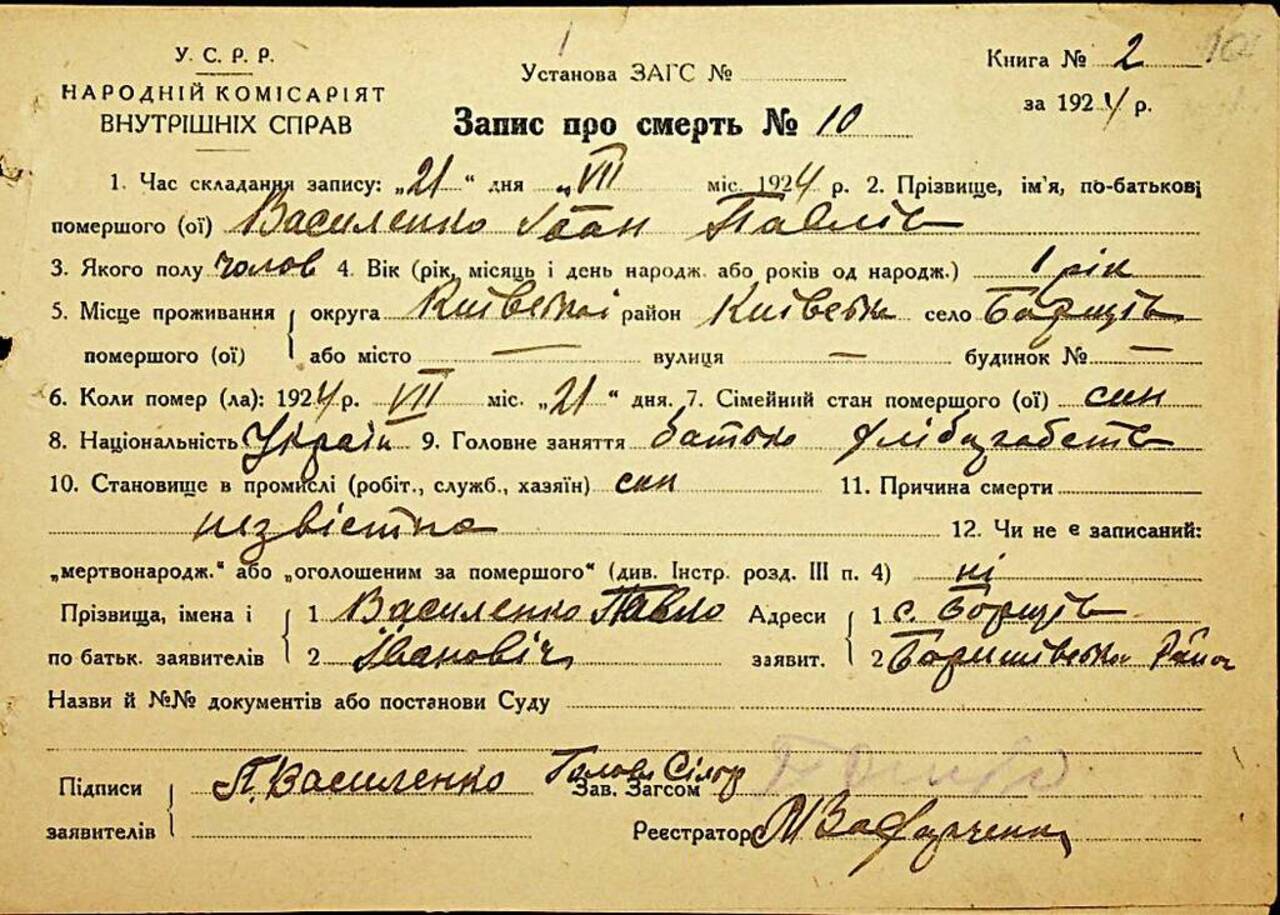 1
У. С. Р. Р.
НАРОДНІЙ КОМІСАРІЯТ
ВНУТРІШНІХ СПРАВ
Установа ЗАГС №
Книга № 2
за 1924 р.
Запис про смерть № 10
1. Час складання запису: „21“ дня „VII міс. 1924 р. 2. Прізвище, ім'я, по-батькові
помершого (ої) Василенко Іван Павлів
3. Якого полу чолов 4. Вік (рік, місяць і день народж. або років од народж.) 1 рік
5. Місце проживання округа Київської район Київська село Борщів
помершого (ої) або місто — вулиця — будинок № —
6. Коли помер (ла): 1924 р. VII міс. „21“ дня. 7. Сімейний стан помершого (ої) син
8. Національність Україн 9. Головне заняття батько
10. Становище в промислі (робіт., служб., хазяїн) син 11. Причина смерти
незвістна 12. Чи не є записаний:
„мертвонародж.“ або „оголошеним за помершого“ (див. Інстр. розд. III п. 4) ні
Прізвища, імена і 1 Василенко Павло Адреси 1 с. Борщів
по батьк. заявителів 2 Івановіч заявит. 2 Район
Назви й №№ документів або постанови Суду
Підписи П. Василенко Голова Сілр
Зав. Загсом
заявителів Реєстратор